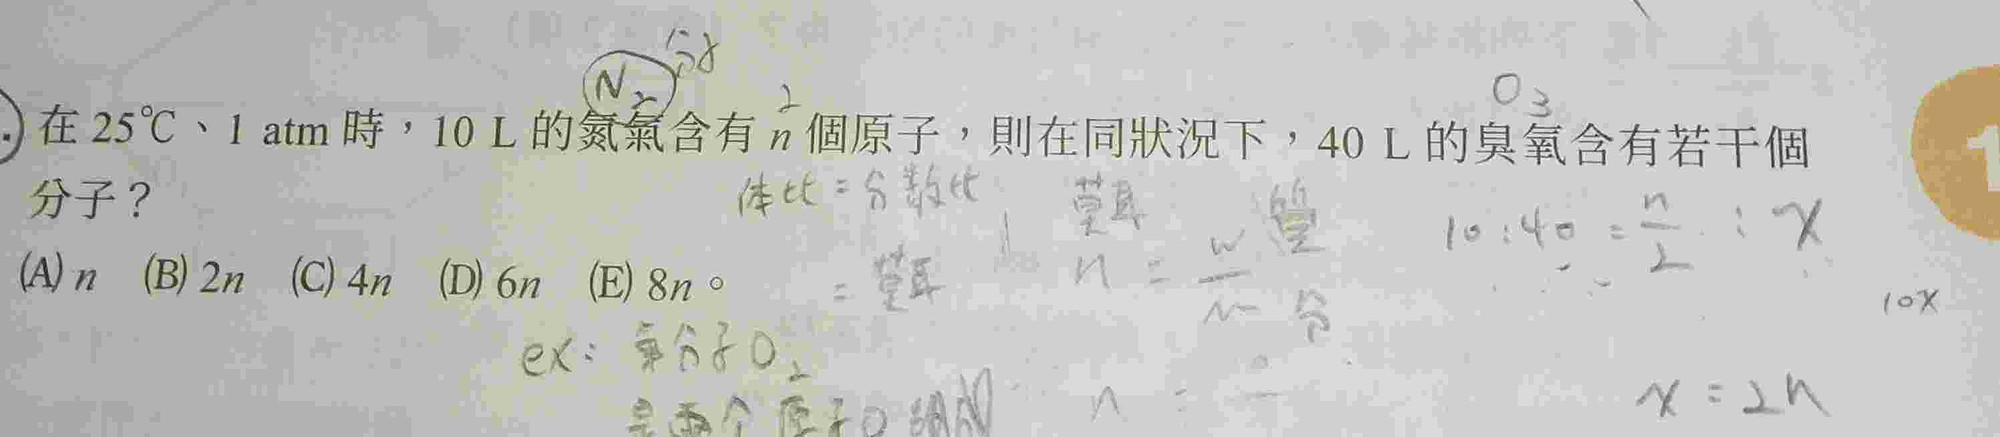 N₂ 分子
2
O₃
在 25℃、1 atm 時，10 L 的氮氣含有 n 個原子，則在同狀況下，40 L 的臭氧含有若干個
分子？
体比 = 分數比
莫耳
質
10 : 40 = n/2 : x
(A) n (B) 2n (C) 4n (D) 6n (E) 8n。
= 莫耳
n = w/m
分
10x
ex: 氧分子 O₂
是兩个原子O組成
n =
x = 2n
1